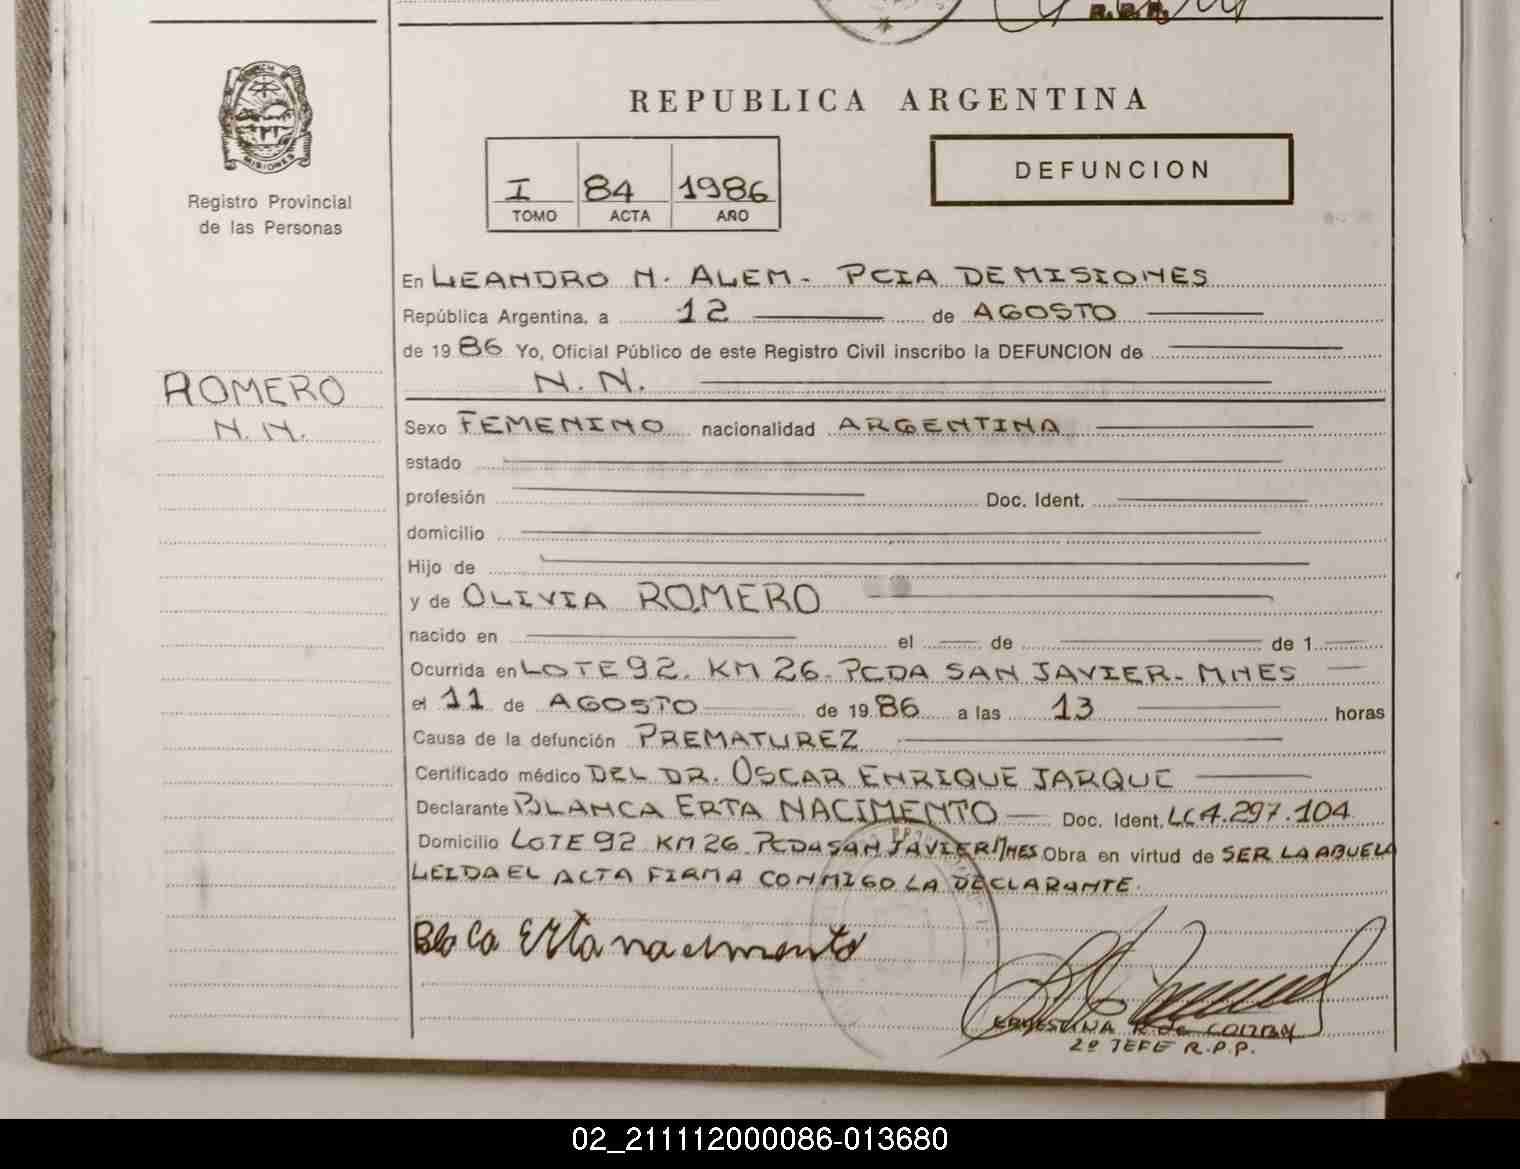 R.P.P.
REPUBLICA ARGENTINA
MISIONES
Registro Provincial
de las Personas
I 84 1986
TOMO ACTA AÑO
DEFUNCION
En LEANDRO N. ALEM - PCIA DE MISIONES
República Argentina, a 12 de AGOSTO
de 1986 Yo, Oficial Público de este Registro Civil inscribo la DEFUNCION de
N. N.
ROMERO
N. N.
Sexo FEMENINO nacionalidad ARGENTINA
estado
profesión Doc. Ident.
domicilio
Hijo de
y de OLIVIA ROMERO
nacido en el de de 1
Ocurrida en LOTE 92. KM 26. PCDA SAN JAVIER - MNES
el 11 de AGOSTO de 1986 a las 13 horas
Causa de la defunción PREMATUREZ
Certificado médico DEL DR. OSCAR ENRIQUE JARQUE
Declarante BLANCA ERTA NACIMENTO Doc. Ident. LC 4.297.104
Domicilio LOTE 92 KM 26 PCDA SAN JAVIER MNES Obra en virtud de SER LA ABUELA
LEIDA EL ACTA FIRMA CONMIGO LA DECLARANTE.
Bla ca Erta nacimento
ERNESTINA R. de
2º JEFE R.P.P.
02_211112000086-013680